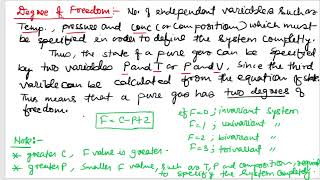 Degree of Freedom:- No. of independent variables such as
Temp., pressure and conc (or composition) which must
be specified in order to define the system completly.
Thus, the state of a pure gas can be specified
by two variables P and T or P and V, since the third
variable can be calculated from the equation of state.
This means that a pure gas has two degrees of
freedom.
F = C-P+2
if F=0; invariant System
F=1; univariant "
F=2; bivariant "
F=3; trivariant "
Note:-
* greater C, F value is greater.
* greater P, smaller F value, such as T, P and composition, required
to specify the system completely.